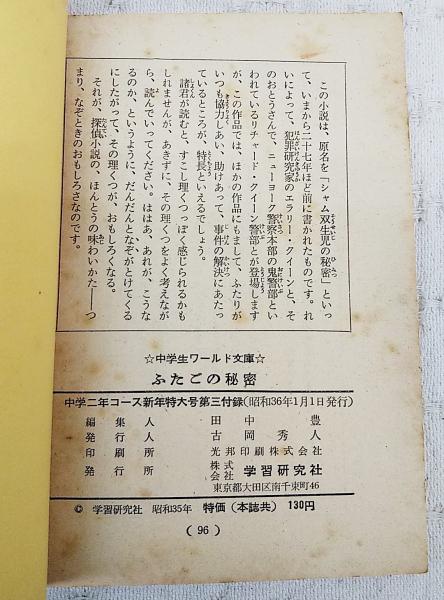 この小説は、原名を「シャム双生児の秘密」といっ
て、いまから二十七年ほど前に書かれたものです。れ
いによって、犯罪研究家のエラリー・クイーンと、そ
のおとうさんで、ニューヨーク警察本部の鬼警部とい
われているリチャード・クイーン警部とが登場します
が、この作品では、ほかの作品にもまして、ふたりが
いつも協力しあい、助けあって、事件の解決にあたっ
ているところが、特長といえるでしょう。
諸君が読むと、すこし理くつっぽく感じられるかも
しれませんが、あきずに、その理くつをよく考えなが
ら、読んでいってください。ははあ、あれが、こうな
るのか、というように、だんだんとなぞがとけてくる
にしたがって、その理くつが、おもしろくなる。
それが、探偵小説の、ほんとうの味わいかた――つ
まり、なぞときのおもしろさなのです。
☆中学生ワールド文庫☆
ふたごの秘密
中学二年コース新年特大号第三付録(昭和36年1月1日発行)
編集人 田中豊
発行人 古岡秀人
印刷所 光邦印刷株式会社
発行所 株式会社 学習研究社
東京都大田区南千束町46
© 学習研究社 昭和35年 特価(本誌共) 130円
(96)